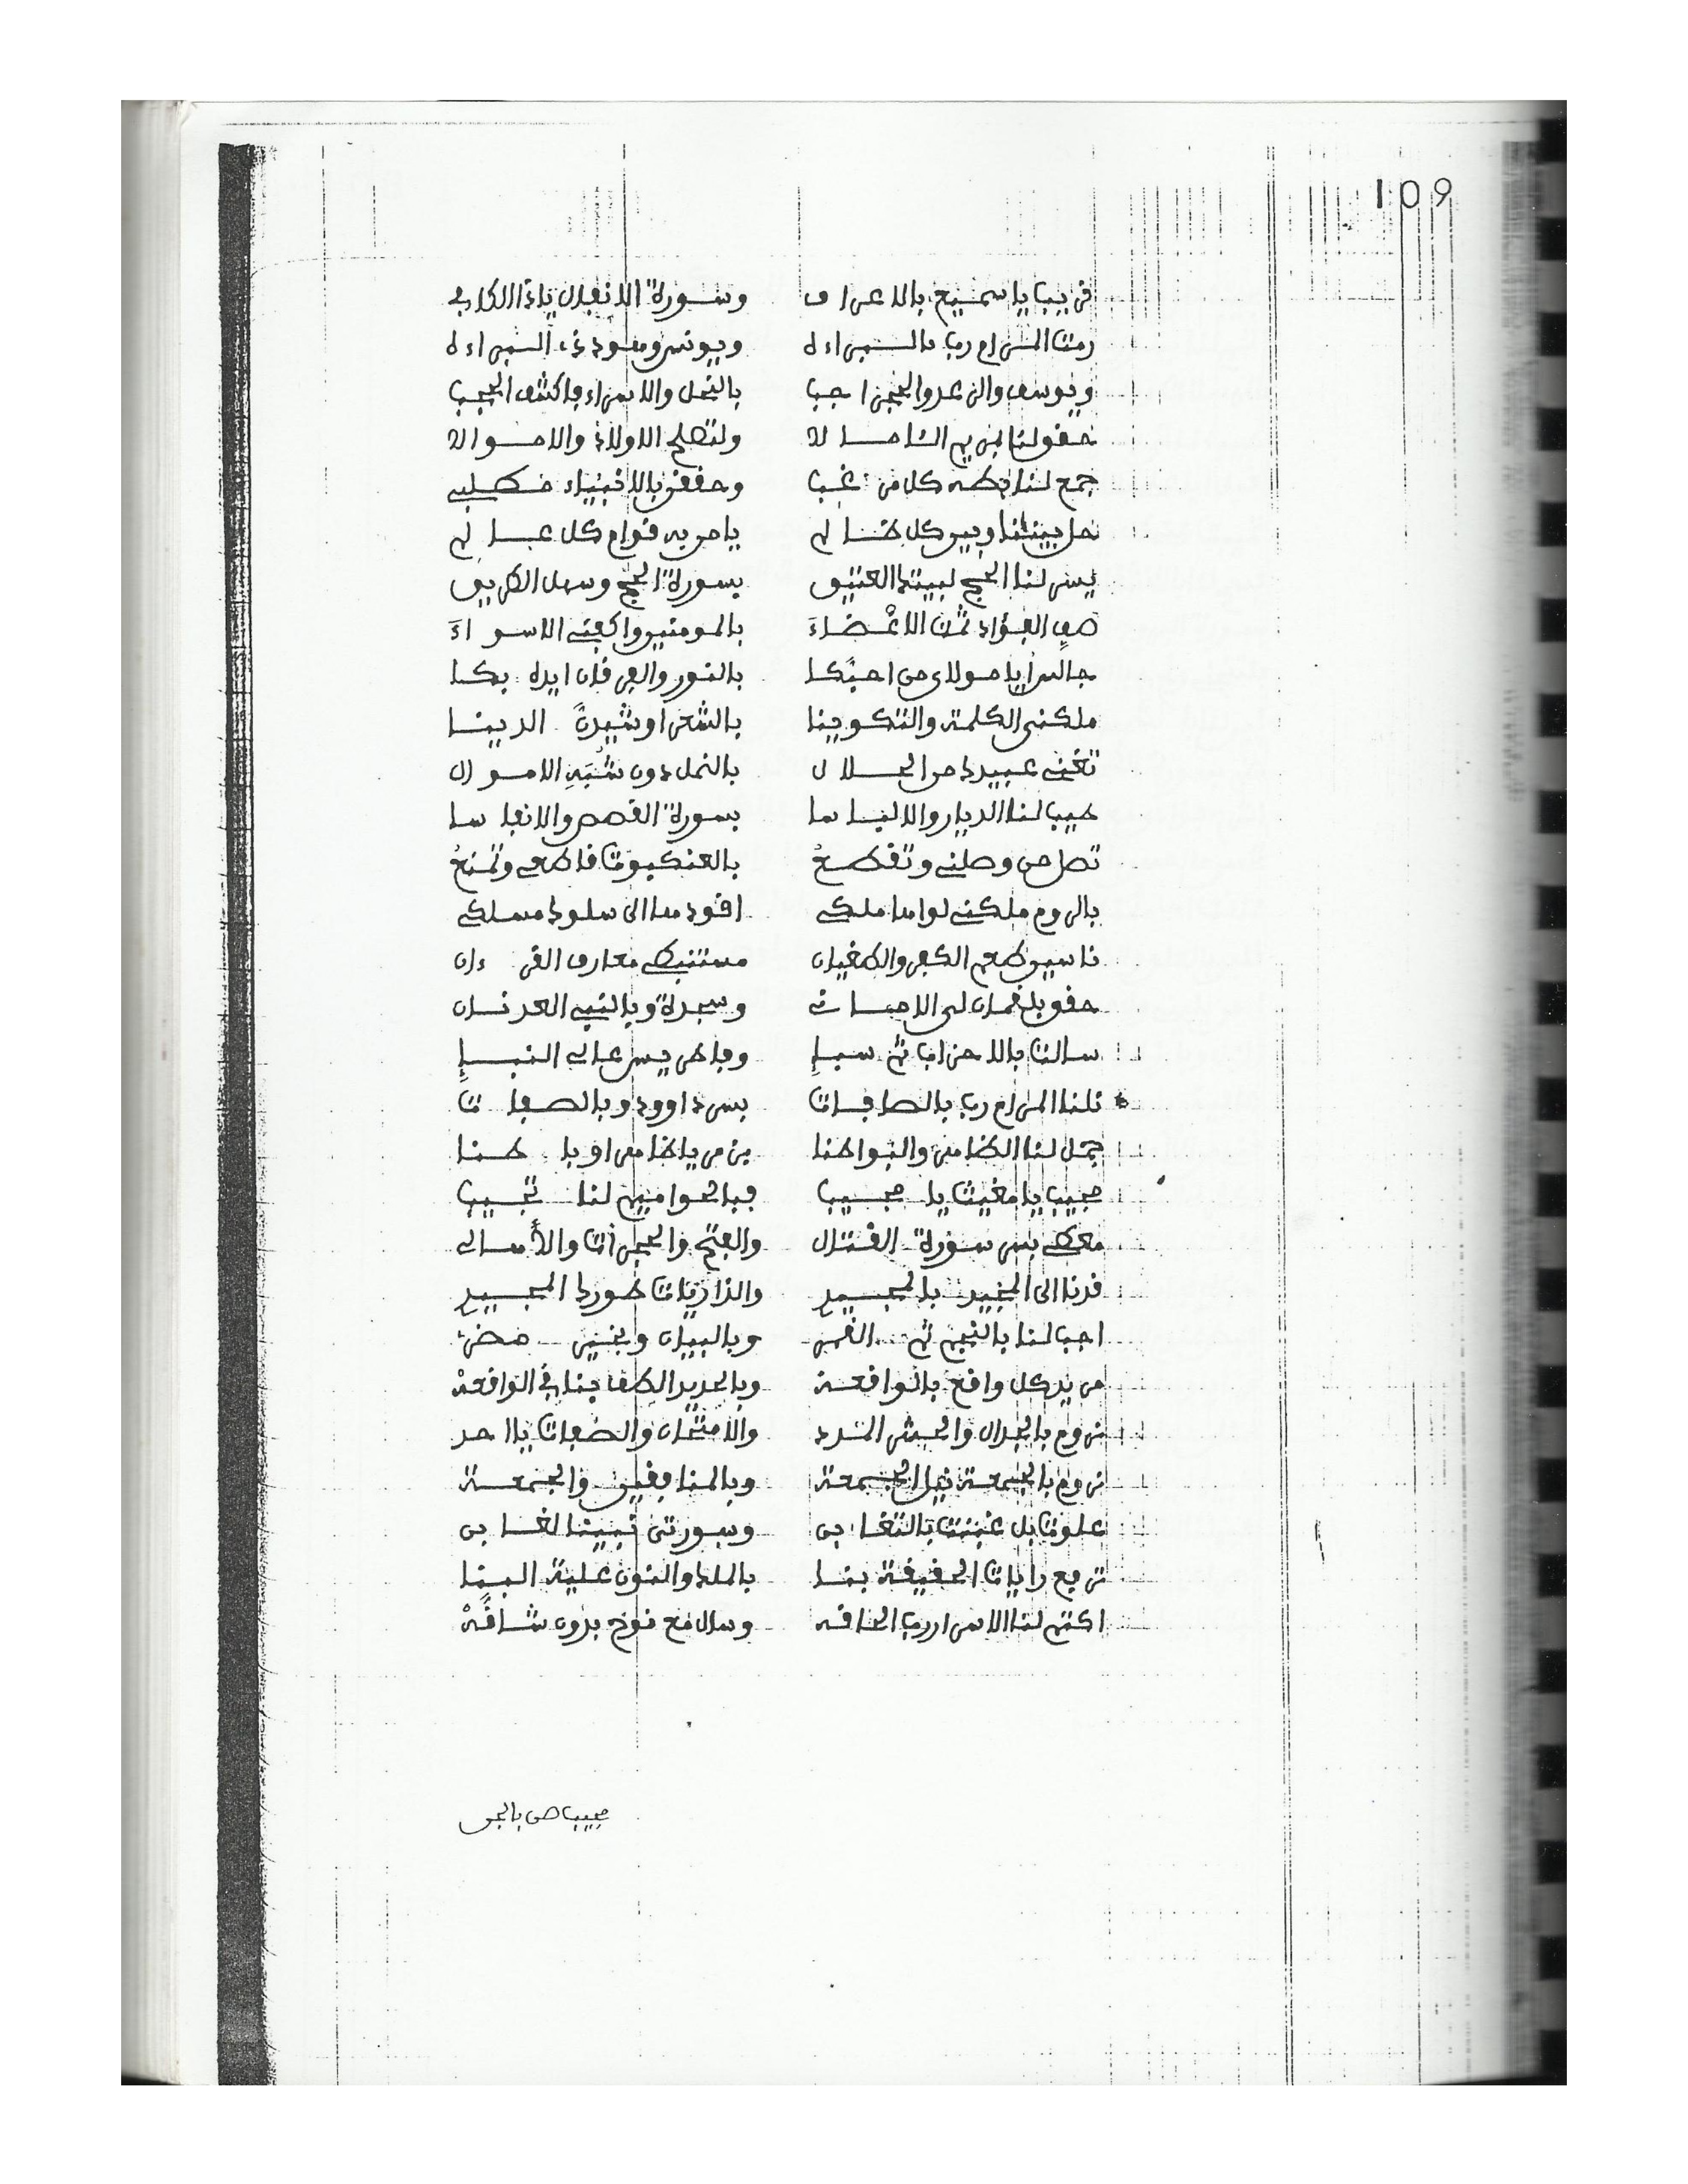 109
قريب يا سميع بالاعراف وسورة الانفال ياذا الكافى
رمت المرام رب بالبراءة ويونس وهود ذى البراءة
ويوسف والرعد والحجر اجب بالنحل والاسراء فاكشف الحجب
حقق لنا بمريم الئامالا ولتصلح الاولاد والاموالا
جمع لنا بطه كل من غبا وحققن بالانبياء مطلبى
حل بيننا وبين كل ظالم يا من به قوام كل عالم
يسر لنا الحج لبيتك العتيق بسورة الحج وسهل الطريق
صف الفؤاد ثمت الاعضاء بالمومنين واكفنى الاسواء
جالسا يا مولاى من احبكا بالنور والفرقان ايده بكا
ملكنى الكلمة والتكوينا بالشعرا وشيدن الدينا
تغنى عبيدك من الحلال بالنمل دون شبه الاموال
طيب لنا الديار والالباسا بسورة القصص والانفاسا
تصل من وصلنى وتقطع بالعنكبوت قاطعى وتمنع
بالروم ملكنى لواما ملكى اقود ما الى سلوك مسلكى
ناسيو طعم الكفر والطغيان مستنبطى معارف القرءان
حقق بلقمان لى الامانى وسجدة وبالنبى العدنان
سالت بالاحزاب ثم سبإ وفاطر يس عالى النبإ
نلنا المرام رب بالصافات بسر داوود وبالصفات
جمل لنا الظاهر والبواطنا بزمر يا ظاهرا وباطنا
مجيب يا مغيث يا مجيب فبالحواميم لنا تجيب
معطى بسر سورة القتال والفتح والحجرات والأمالى
قدنا الى الخير بالمجيد والذاريات طورك المجيد
اجب لنا بالنجم ثم القمر وبالبيان وبخير مضر
من يد كل واقع بالواقعة وبالحديد الطف بنا فى الواقعة
نروم بالجدال والحشر المدد والامتحان والصفات يا احد
نروم بالجمعة نيل الجمعة وبالمنافقين والجمعة
علوت بل غبنت بالتغابن وسورتى نبينا لغابن
ترفع رايات الحقيقة بنا بالملك والنون علية البنا
اكتم لنا الاسرار رب الحاقه وسال مع نوح بدون شاقه
مجيب من بالجن